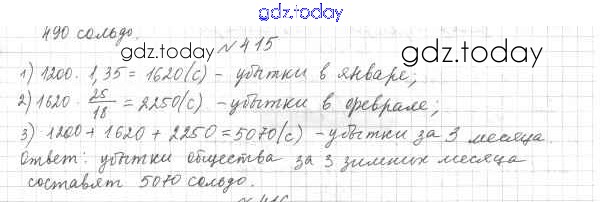 gdz.today
490 сольдо.
gdz.today
№415
gdz.today
1) 1200 · 1,35 = 1620(с) - убытки в январе;
2) 1620 · 25/18 = 2250(с) - убытки в феврале;
3) 1200 + 1620 + 2250 = 5070(с) - убытки за 3 месяца.
Ответ: убытки общества за 3 зимних месяца
составят 5070 сольдо.
№416